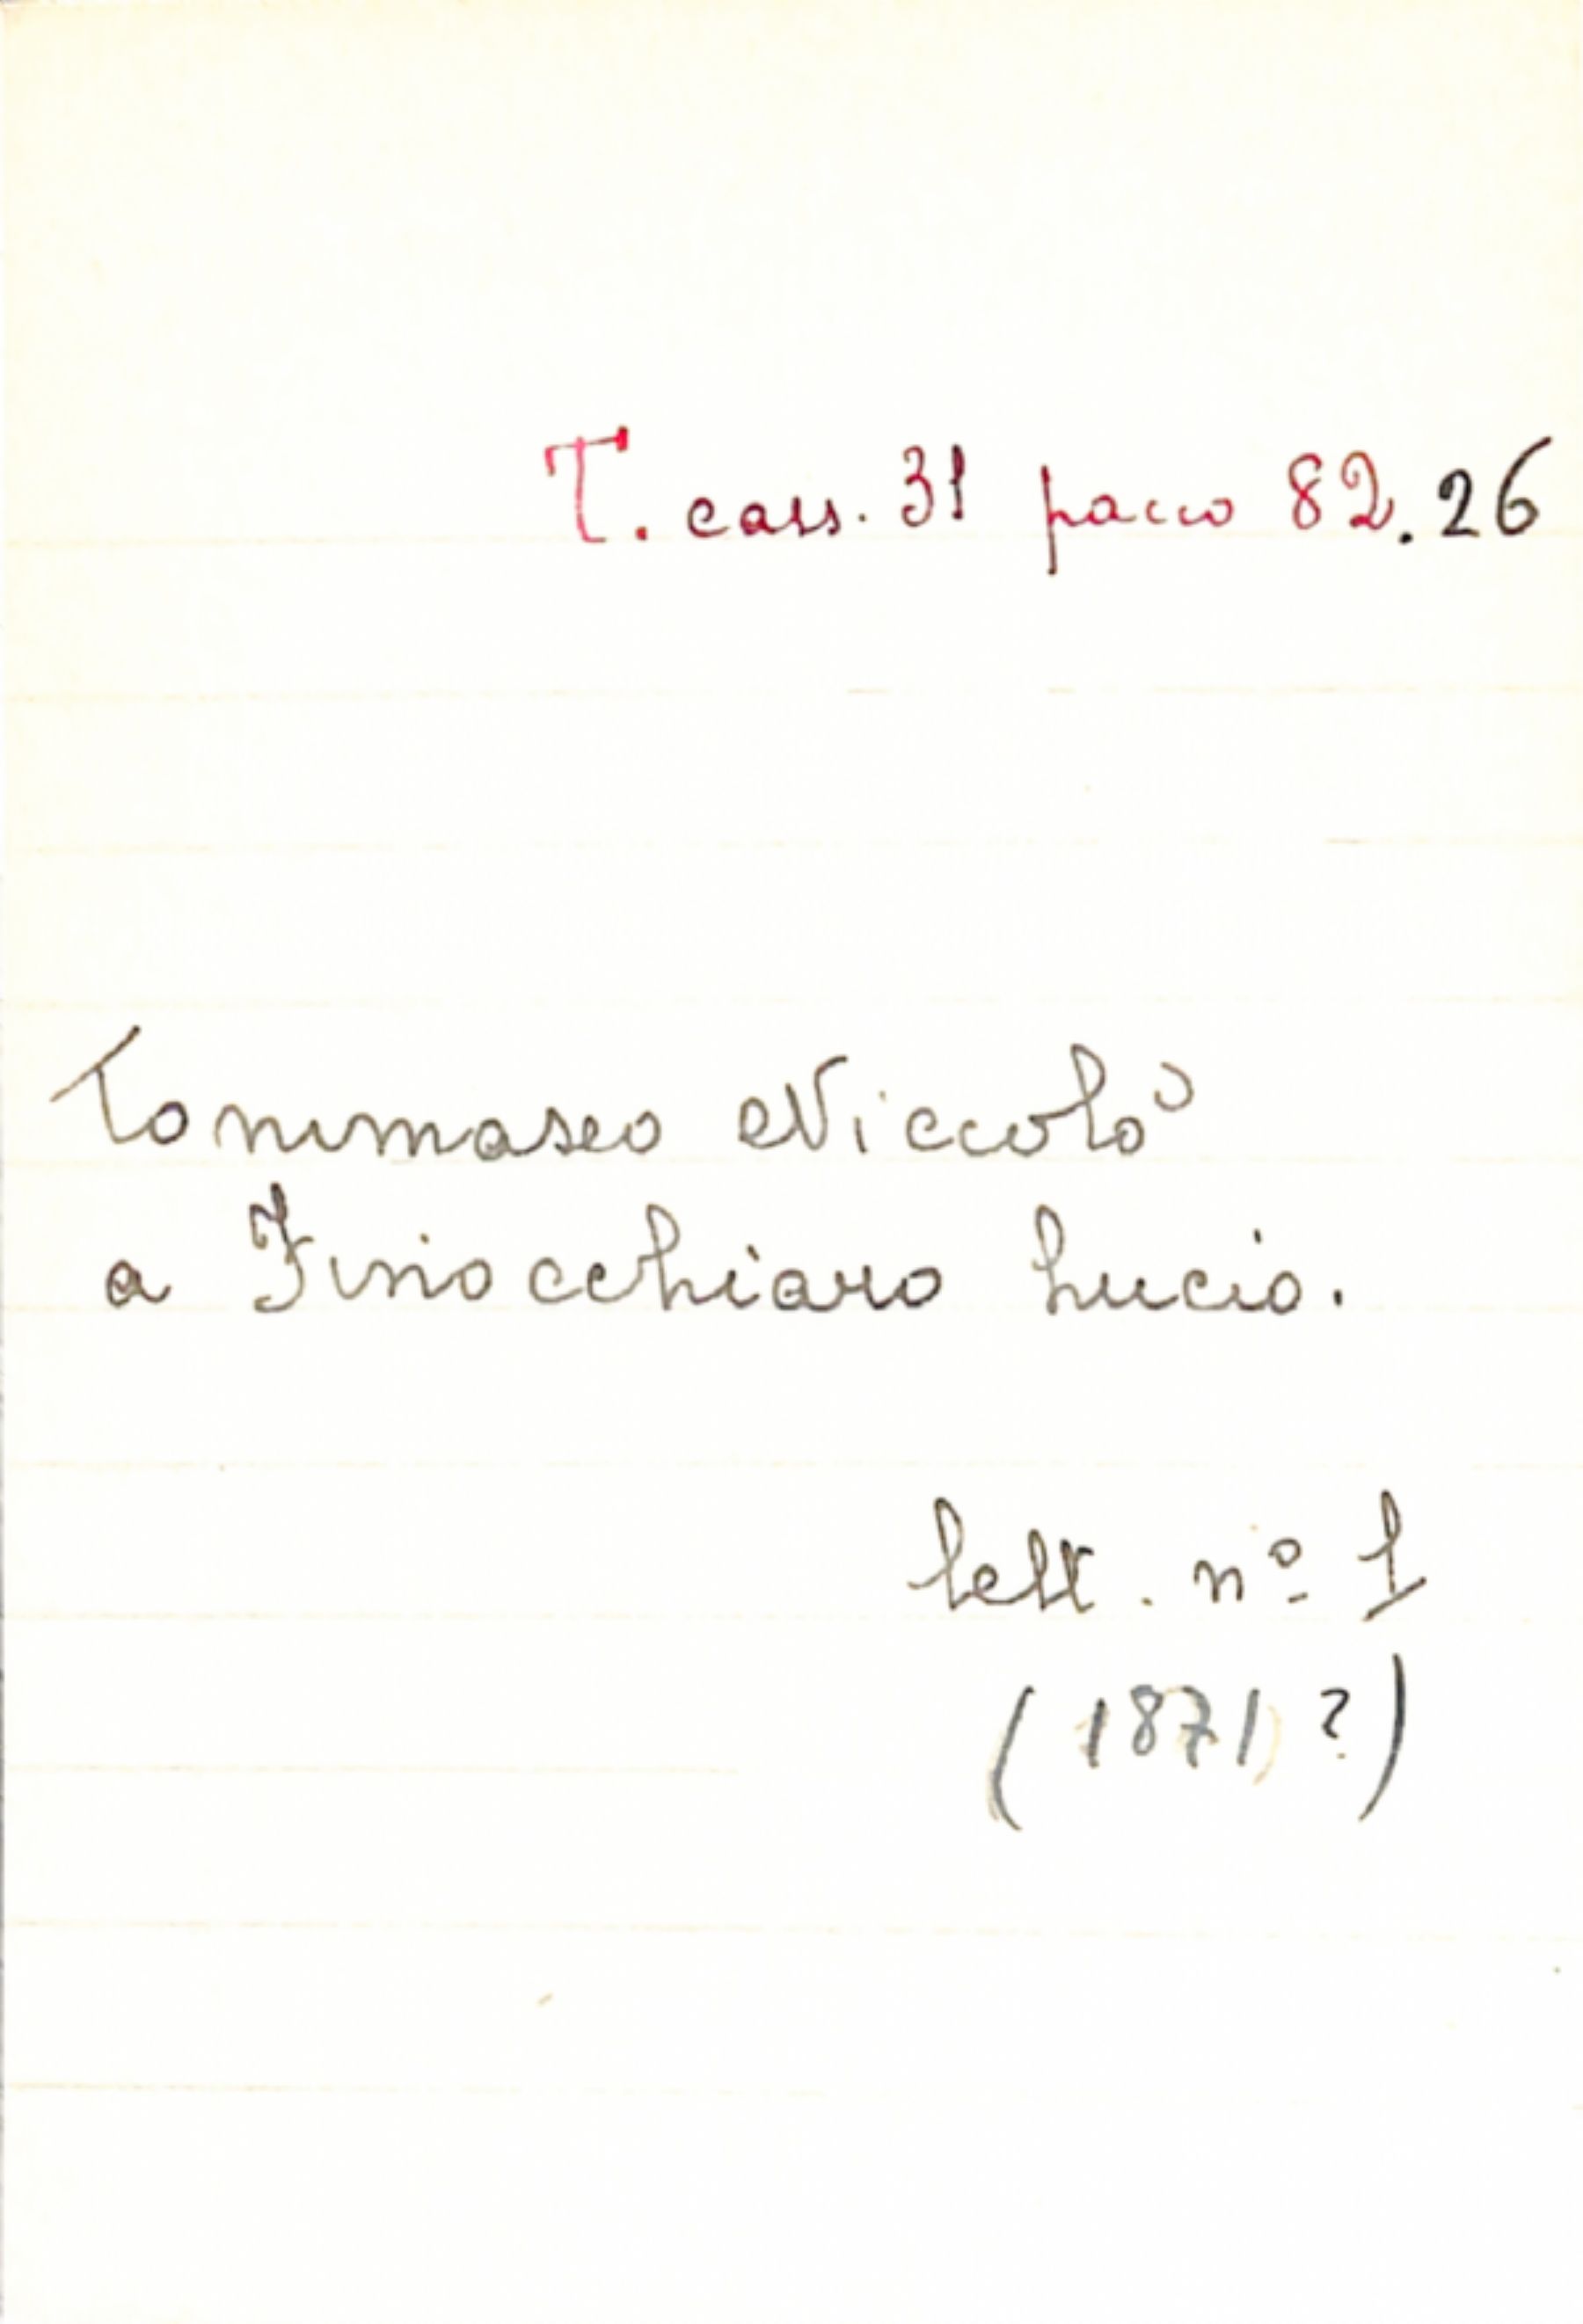 T. cass. 31 pacco 82.26
Tommaseo Niccolò
a Finocchiaro Lucio.
lett. nº 1
(1871?)